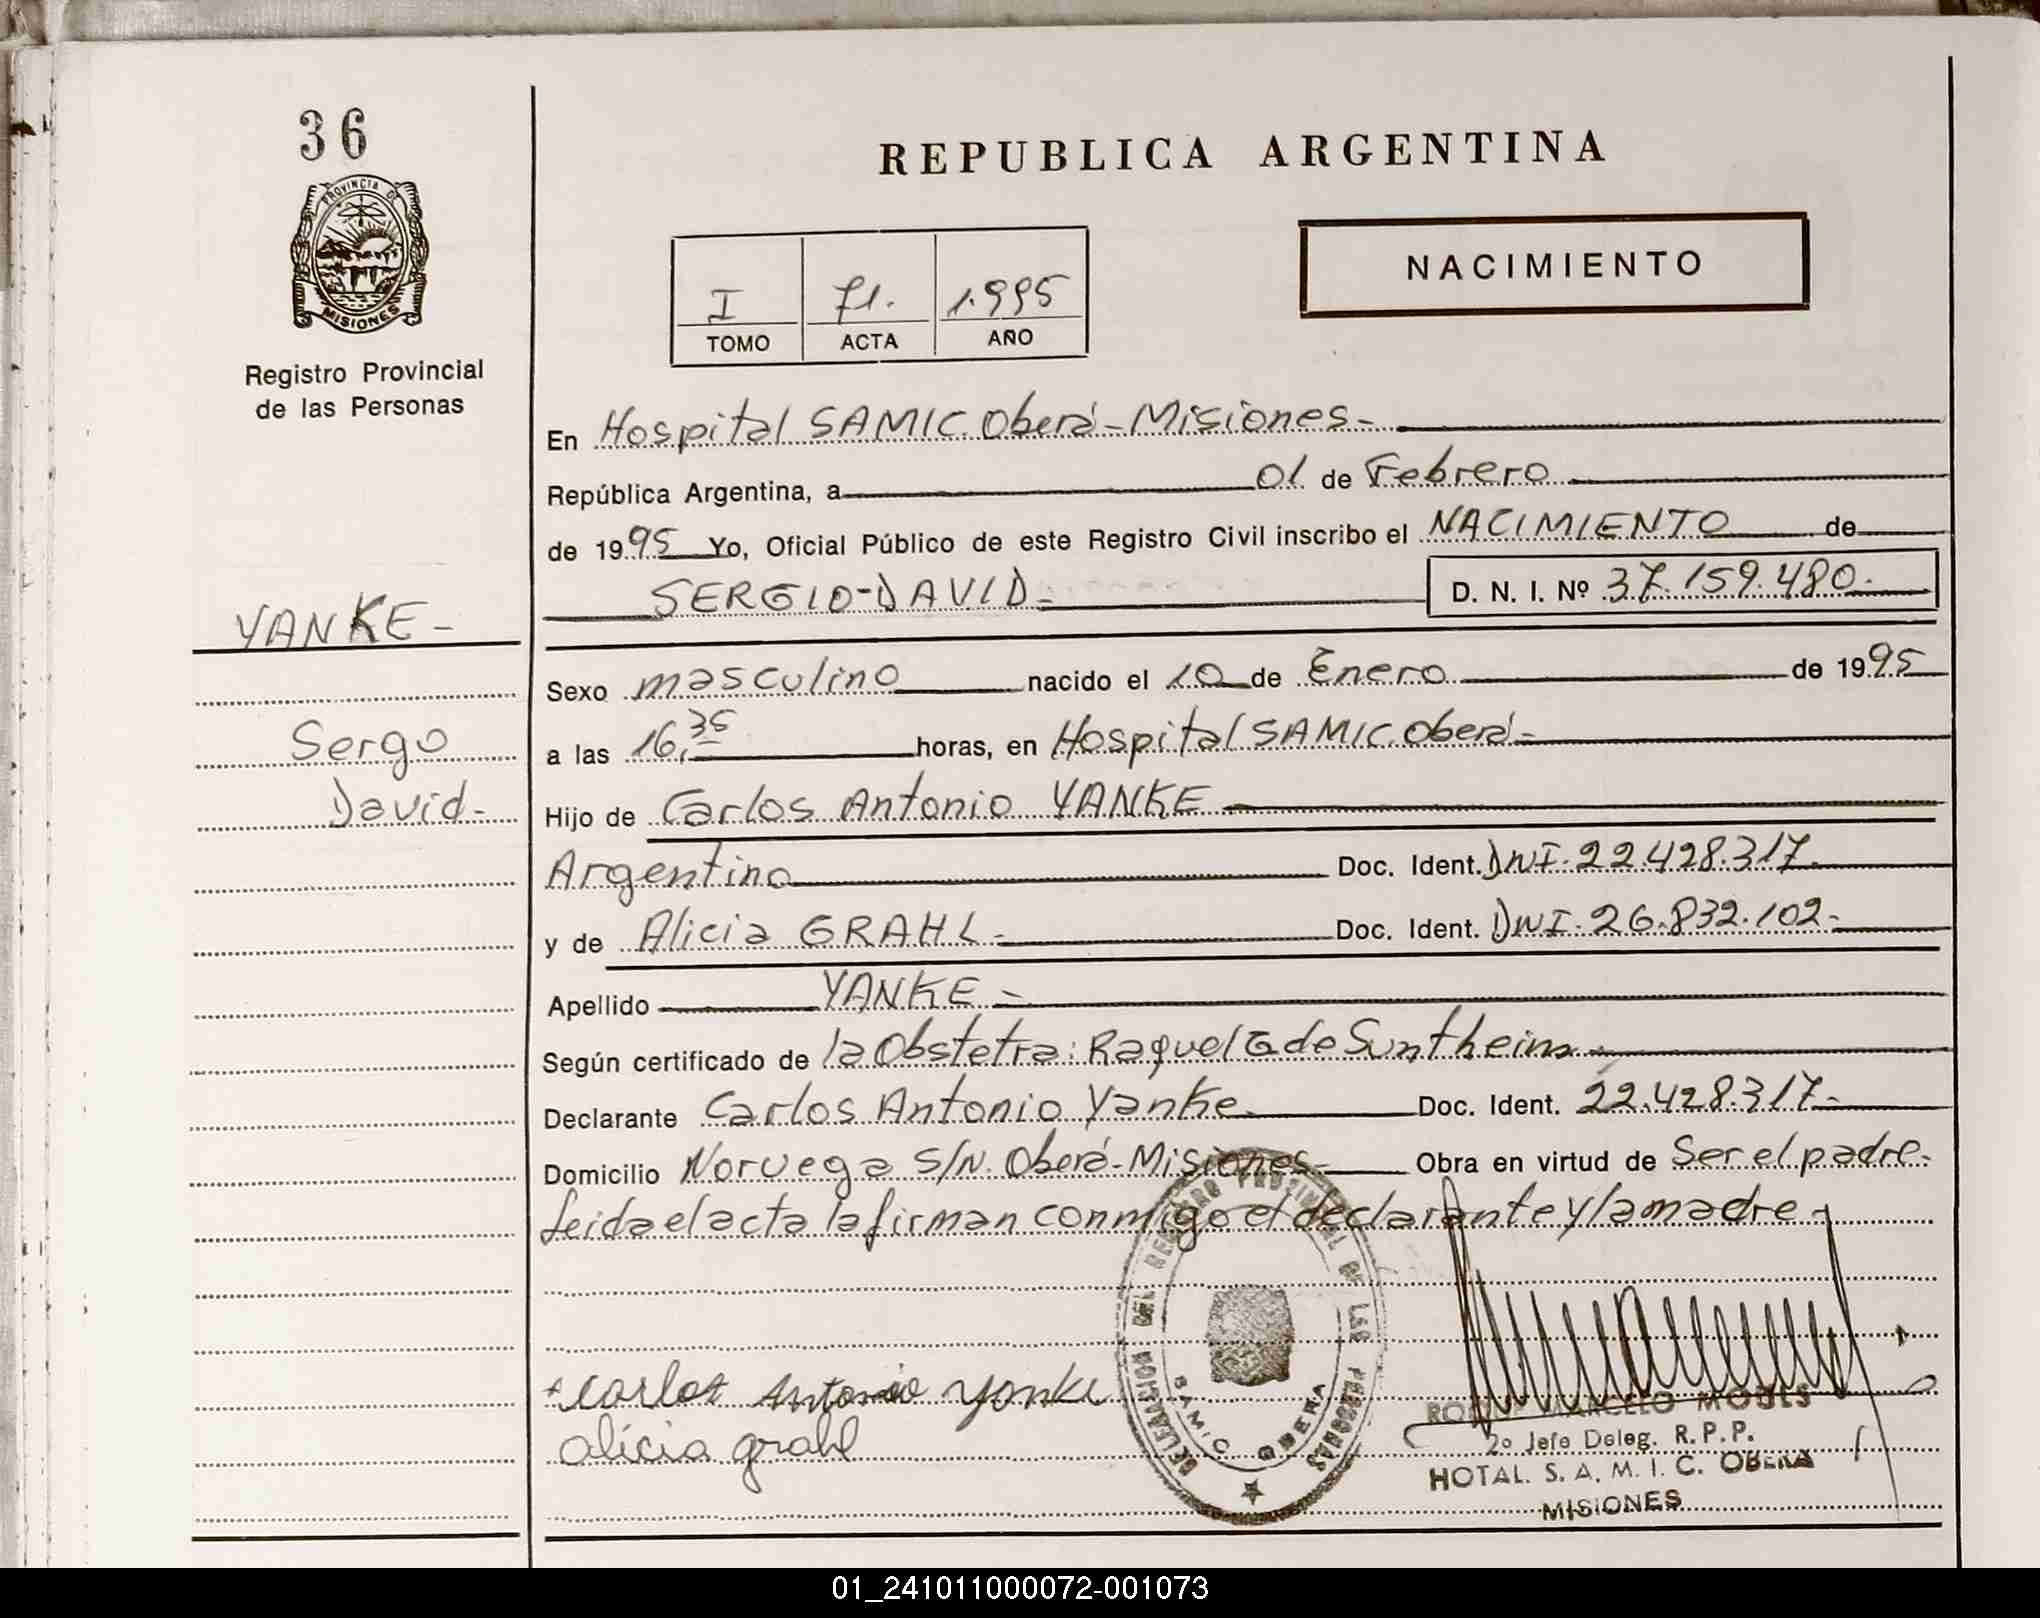 36
REPUBLICA ARGENTINA
PROVINCIA DE
MISIONES
NACIMIENTO
I 71. 1.995
TOMO ACTA AÑO
Registro Provincial
de las Personas
En Hospital SAMIC. Oberá - Misiones -
República Argentina, a 01 de Febrero
de 1995 Yo, Oficial Público de este Registro Civil inscribo el NACIMIENTO de
SERGIO-DAVID - D. N. I. Nº 37.159.480.-
YANKE -
Sexo masculino nacido el 10 de Enero de 1995
Sergo
a las 16,35 horas, en Hospital SAMIC. Oberá -
David -
Hijo de Carlos Antonio YANKE
Argentino Doc. Ident. DNI. 22.428.317.
y de Alicia GRAHL - Doc. Ident. DNI. 26.832.102 -
Apellido YANKE -
Según certificado de la Obstetra: Raquel G de Suntheim -
Declarante Carlos Antonio Yanke Doc. Ident. 22.428.317.-
Domicilio Noruega S/N. Oberá - Misiones - Obra en virtud de Ser el padre -
Leida el acta la firman conmigo el declarante y la madre -
DELEGACION DEL REGISTRO PROVINCIAL DE LAS PERSONAS
SAMIC OBERA
Carlos Antonio Yanke
Alicia grahl
MARCELO
2º Jefe Deleg. R. P. P.
HOTAL. S. A. M. I. C. OBERA
MISIONES
01_241011000072-001073